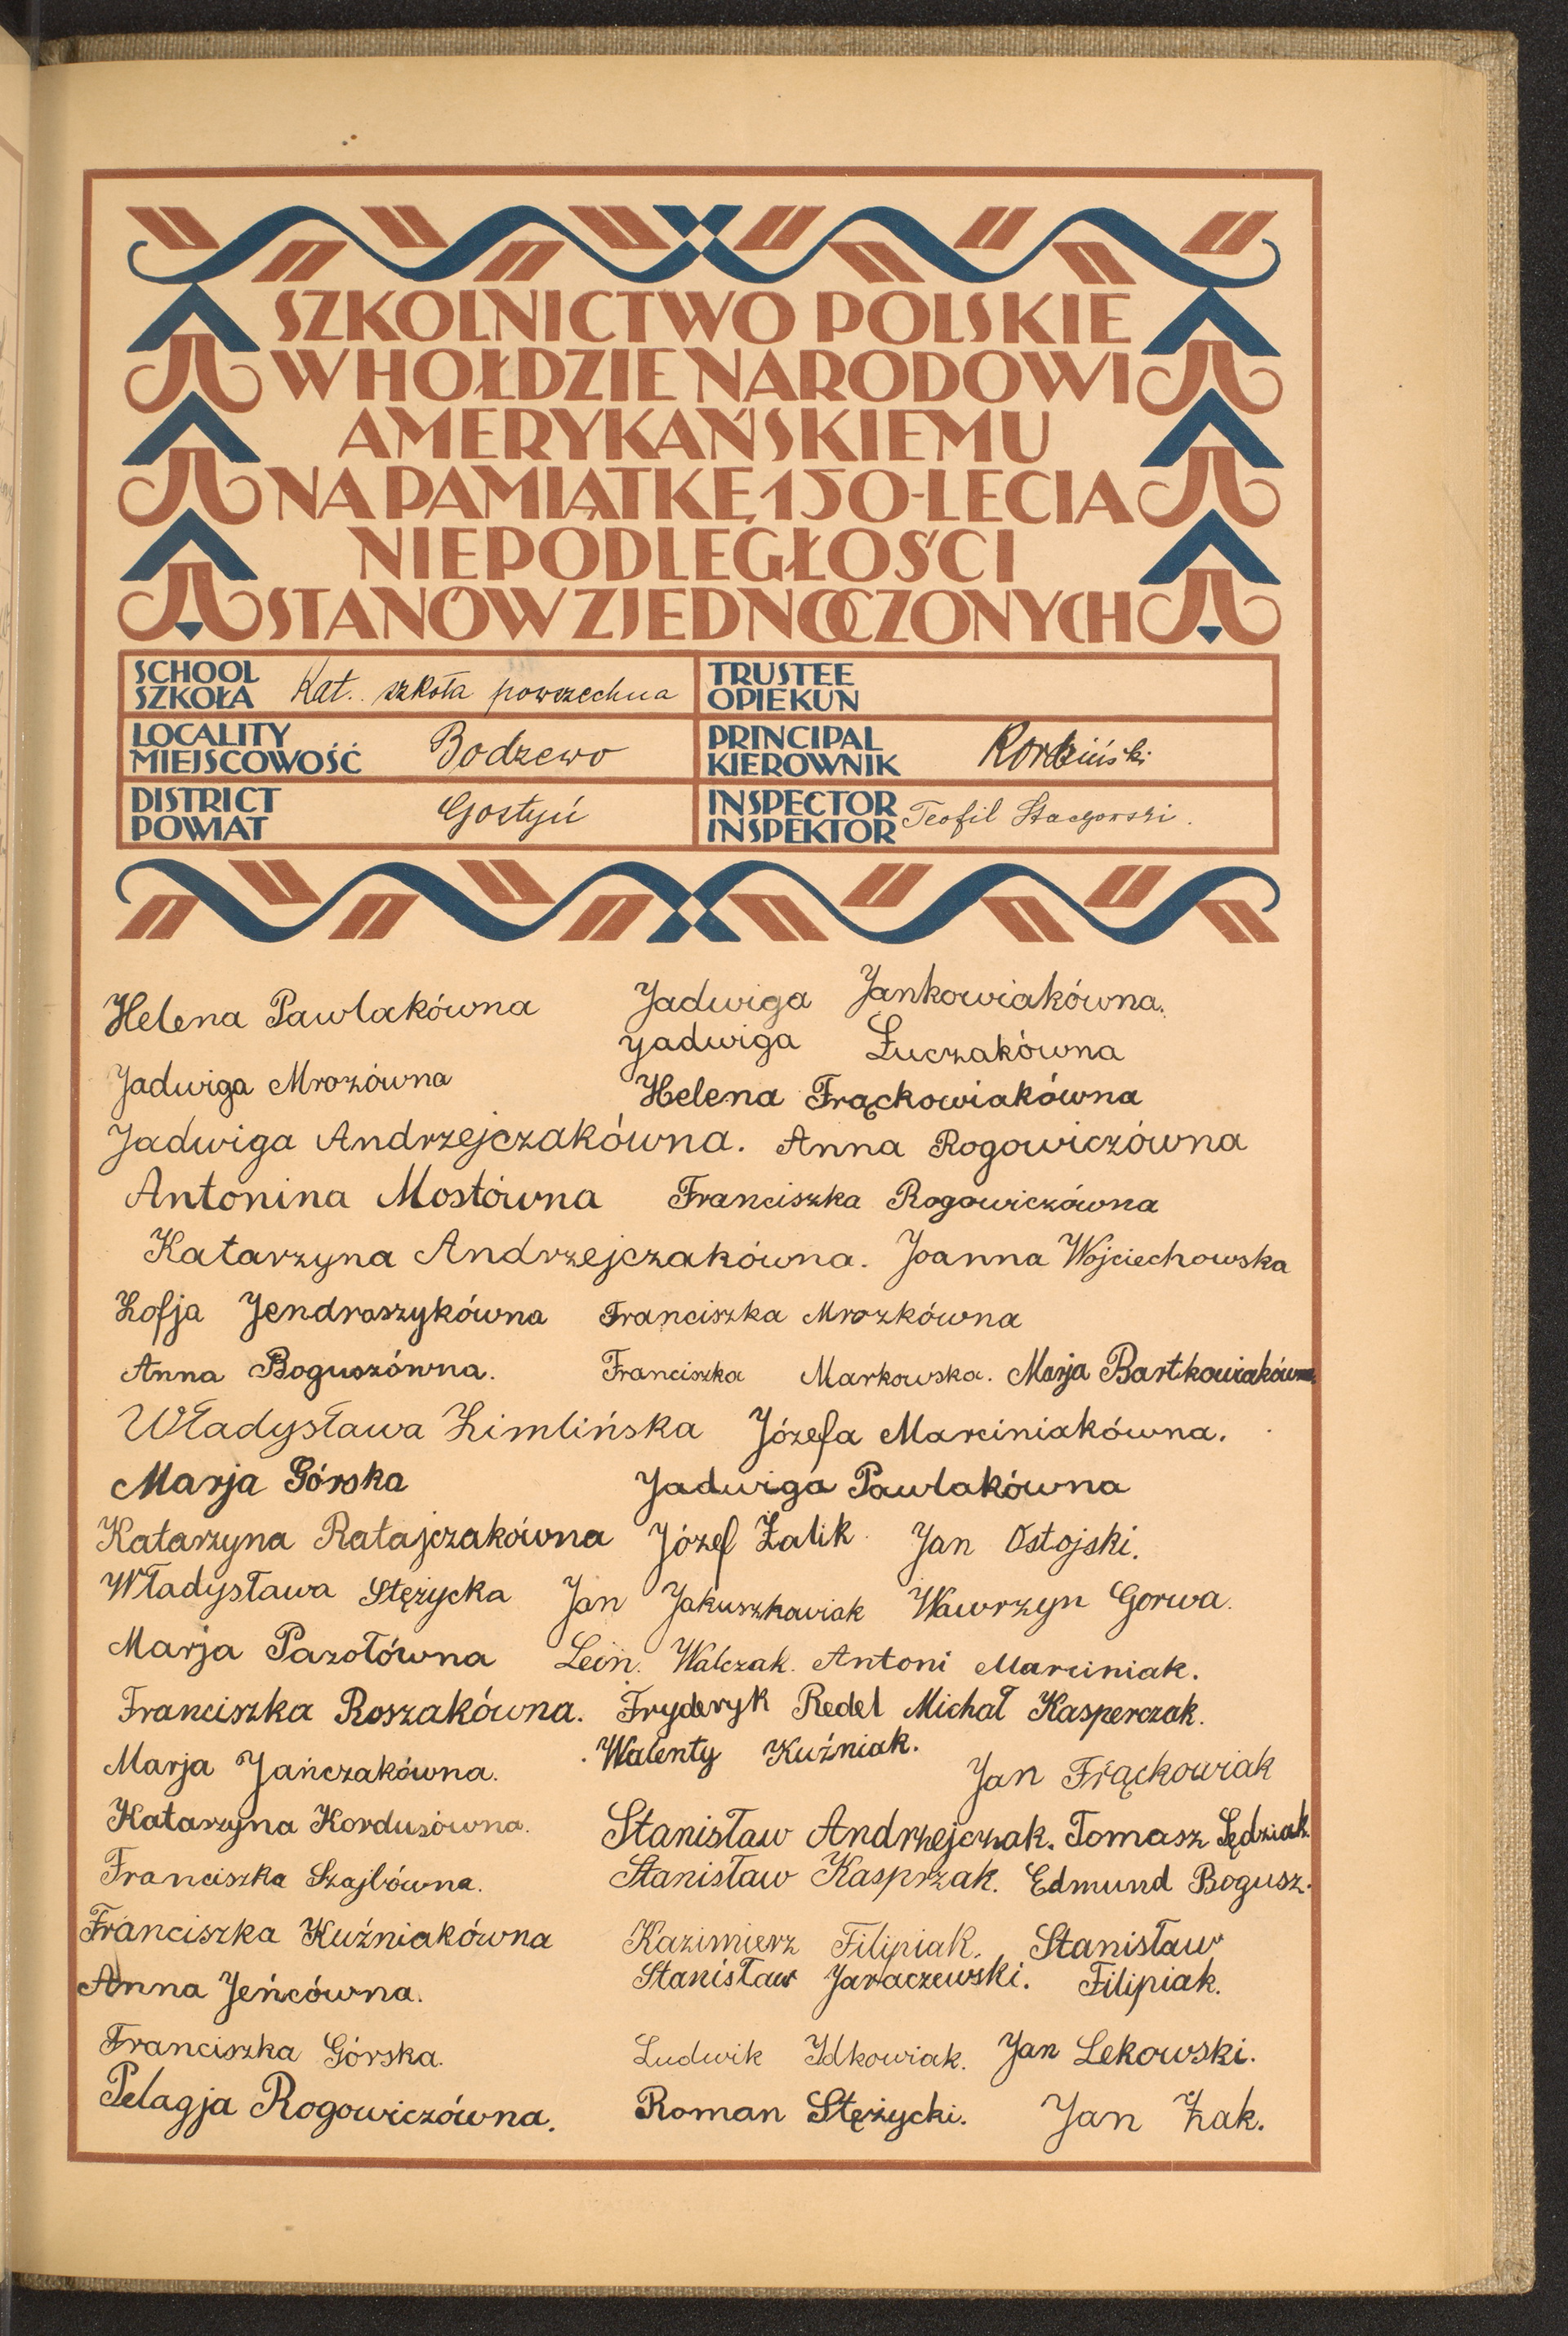 SZKOLNICTWO POLSKIE
W HOŁDZIE NARODOWI
AMERYKAŃSKIEMU
NA PAMIĄTKĘ 150-LECIA
NIEPODLEGŁOŚCI
STANÓW ZJEDNOCZONYCH
SCHOOL
SZKOŁA Kat. szkoła powszechna
TRUSTEE
OPIEKUN
LOCALITY
MIEJSCOWOŚĆ Bodzewo
PRINCIPAL
KIEROWNIK
DISTRICT
POWIAT Gostyń
INSPECTOR
INSPEKTOR Teofil
Helena Pawlakówna Jadwiga Jankowiakówna.
Jadwiga Łuczakówna
Jadwiga Mrozówna Helena Frąckowiakówna
Jadwiga Andrzejczakówna. Anna Rogowiczówna
Antonina Mostówna Franciszka Rogowiczówna
Katarzyna Andrzejczakówna. Joanna Wojciechowska
Zofja Jendraszykówna Franciszka Mrozkówna
Anna Boguszówna. Franciszka Markowska. Marja Bartkowiakówna
Władysława Zimlińska Józefa Marciniakówna.
Marja Górska Jadwiga Pawlakówna
Katarzyna Ratajczakówna Józef Żalik Jan Ostojski.
Władysława Stężycka Jan Jakuszkowiak Wawrzyn Gorwa.
Marja Pazołówna Leon. Walczak. Antoni Marciniak.
Franciszka Roszakówna. Fryderyk Redel Michał Kasperczak.
Marja Jańczakówna. Walenty Kuźniak. Jan Frąckowiak
Katarzyna Kordusówna. Stanisław Andrzejczak. Tomasz Sędziak.
Franciszka Szajbówna. Stanisław Kasprzak. Edmund Bogusz.
Franciszka Kuźniakówna Kazimierz Filipiak. Stanisław
Anna Jeńcówna. Stanisław Jaraczewski. Filipiak.
Franciszka Górska. Ludwik Idkowiak. Jan Lekowski.
Pelagja Rogowiczówna. Roman Stężycki. Jan Żak.